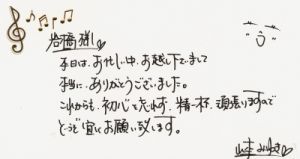 岩橋様!
本日は、お忙しい中、お越し下さいまして
本当に、ありがとうございました。
これからも、初心を忘れず、精一杯、頑張りますので
どうぞ宜しくお願い致します。
山本みゆき